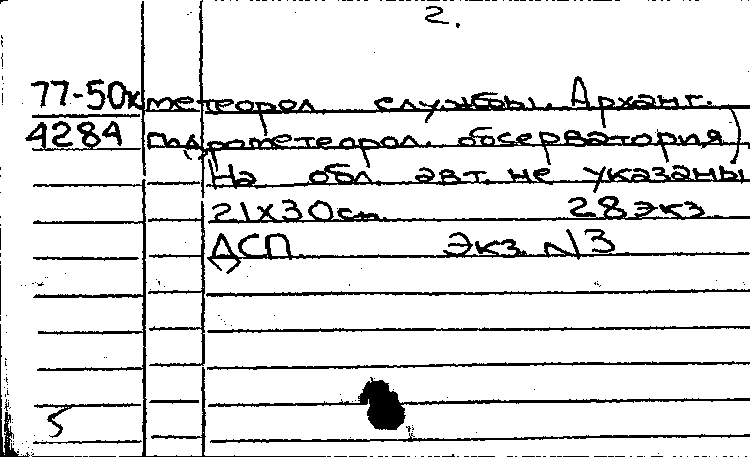 2.
77-50к метеорол. службы. Арханг.
4284 гидрометеорол. обсерватория)
На обл. авт. не указаны
21х30см. 28экз.
ДСП Экз. №3
5